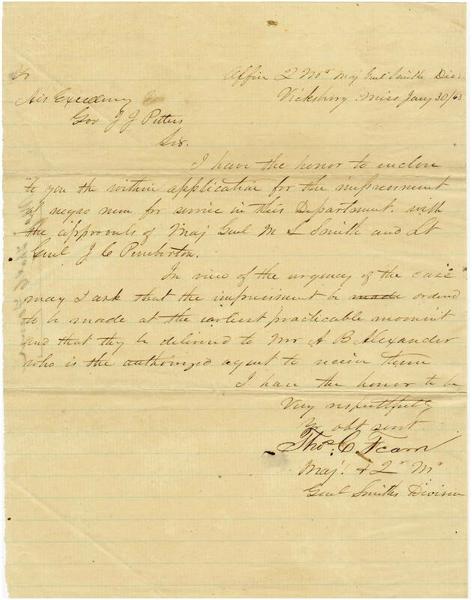 Office Q Mr Maj Genl Smith Divis
Vicksburg Miss Jany 30/63
To
His Excellency
Gov J J Pettus
Sir.
I have the honor to enclose
to you the within application for the impressment
of negro men for service in this Department. with
the approvals of Maj Genl M L Smith and Lt
Genl J C Pemberton.
In view of the urgency of the case
may I ask that the impressment be made ordered
to be made at the earliest practicable moment
and that they be delivered to Mr A B Alexander
who is the authorized agent to receive them
I have the honor to be
Very respectfully
Yr obt servt
Thos. C. Fearn
Maj. & Q. Mr
Genl Smiths Division